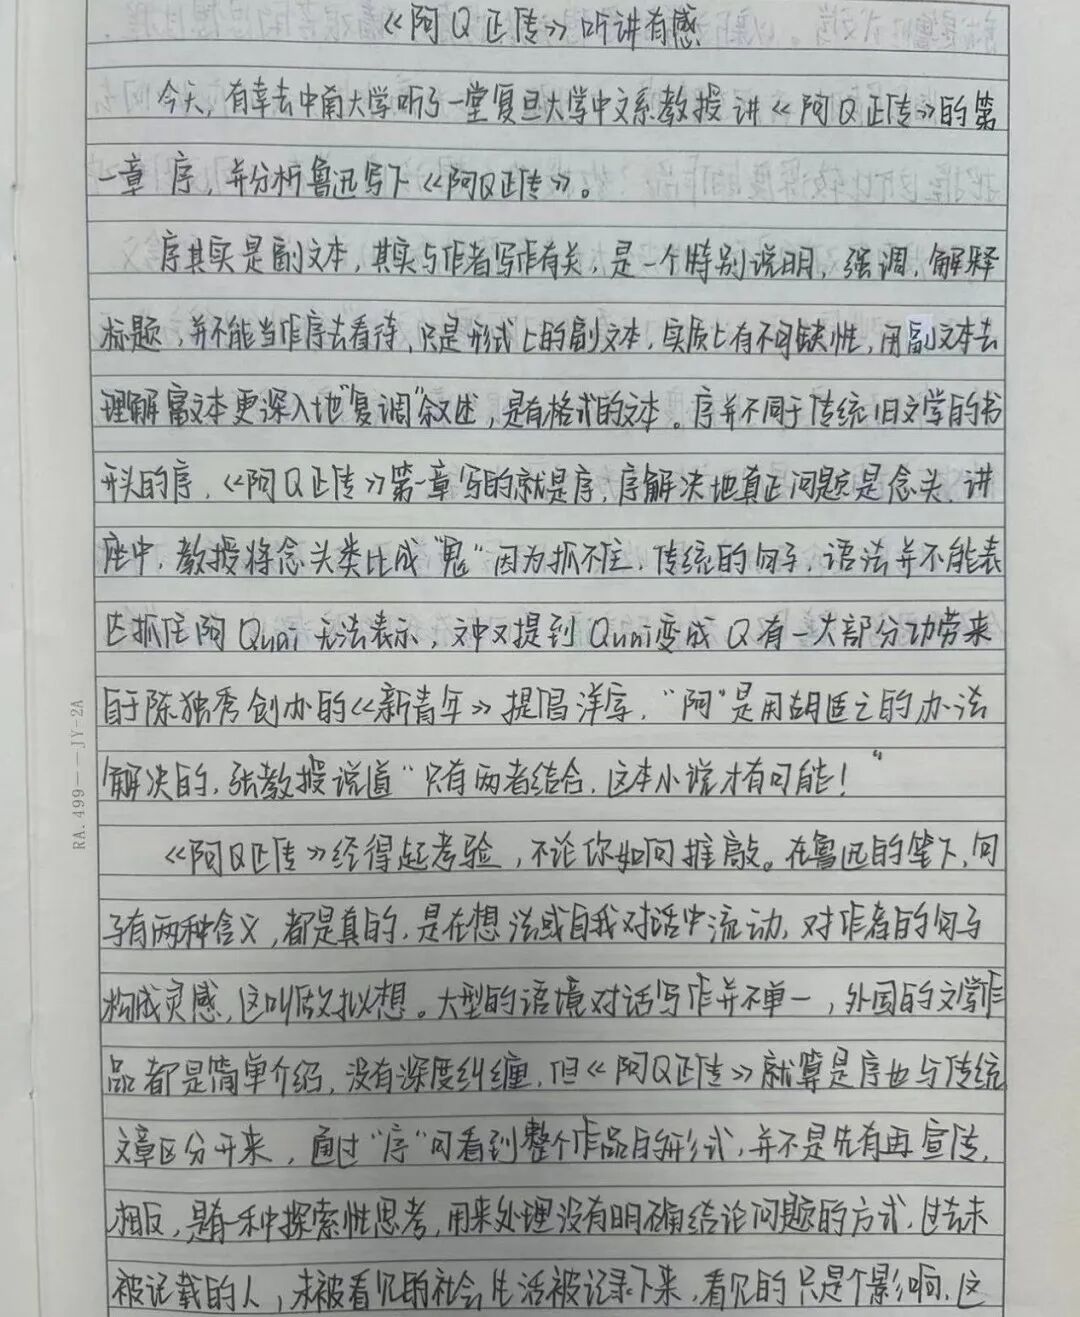 《阿Q正传》听讲有感
今天,有幸去中南大学听了一堂复旦大学中文系教授讲《阿Q正传》的第
一章 序,并分析鲁迅写下《阿Q正传》。
序其实是副文本,其实与作者写作有关,是一个特别说明,强调,解释
标题,并不能当作序去看待,只是形式上的副文本,实质上有不可缺性,用副文本去
理解富文本更深入地"复调"叙述,是有格式的文本。序并不同于传统旧文学的书
开头的序,《阿Q正传》第一章写的就是序,序解决地真正问题是念头,讲
座中,教授将念头类比成"鬼"因为抓不住,传统的句子,语法并不能表
达抓住阿Quai无法表示,文中又提到Quai变成Q有一大部分功劳来
自于陈独秀创办的《新青年》提倡洋字,"阿"是用胡适之的办法
解决的,张教授说道"只有两者结合,这本小说才有可能!"
《阿Q正传》经得起考验,不论你如何推敲。在鲁迅的笔下,句
子有两种含义,都是真的,是在想法或自我对话中流动,对作者的句子
构成灵感,这叫做拟想。大型的语境对话写作并不单一,外国的文学作
品都是简单介绍,没有深度纠缠,但《阿Q正传》就算是序也与传统
文章区分开来,通过"序"可看到整个作品的形式,并不是先有再宣传,
相反,是有一种探索性思考,用来处理没有明确结论问题的方式,过去未
被记载的人,未被看见的社会生活被记录下来,看见的只是个影响,这
RA.499--JY-2A